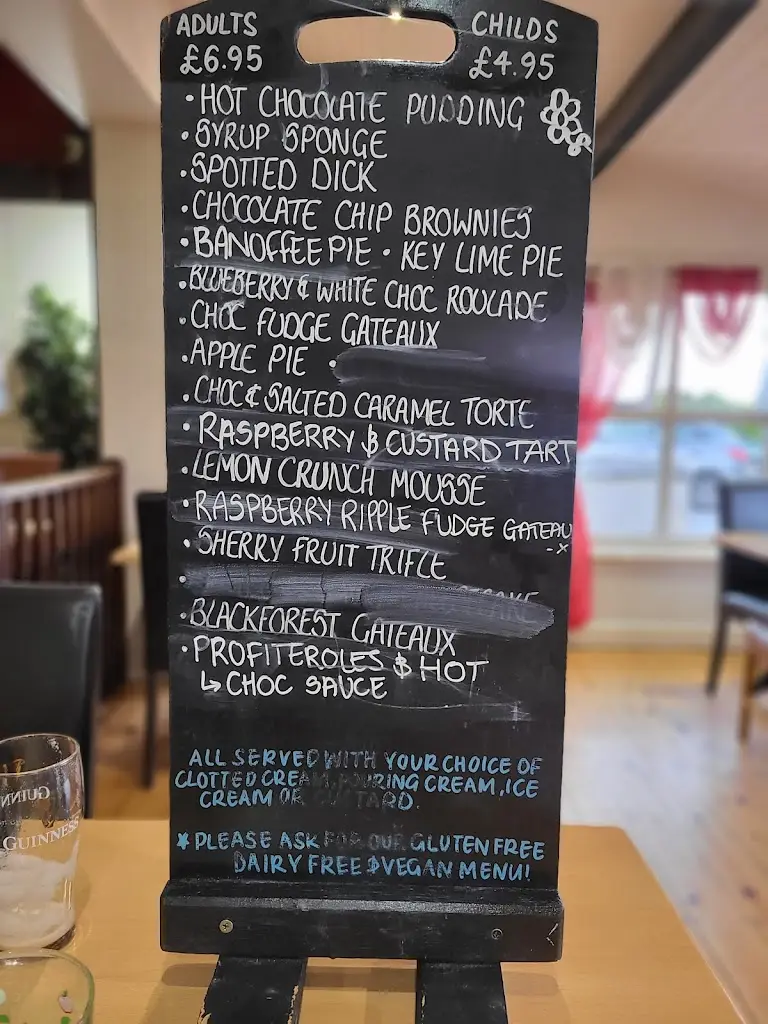 ADULTS CHILDS
£6.95 £4.95
• HOT CHOCOLATE PUDDING
• SYRUP SPONGE
• SPOTTED DICK
• CHOCOLATE CHIP BROWNIES
• BANOFFEE PIE • KEY LIME PIE
• BLUEBERRY & WHITE CHOC ROULADE
• CHOC FUDGE GATEAUX
• APPLE PIE •
• CHOC & SALTED CARAMEL TORTE
• RASPBERRY & CUSTARD TART
• LEMON CRUNCH MOUSSE
• RASPBERRY RIPPLE FUDGE GATEAU
-X
• SHERRY FRUIT TRIFLE
•
• BLACKFOREST GATEAUX
• PROFITEROLES & HOT
↳ CHOC SAUCE
ALL SERVED WITH YOUR CHOICE OF
CLOTTED CREAM, POURING CREAM, ICE
CREAM OR CUSTARD.
* PLEASE ASK FOR OUR GLUTEN FREE
DAIRY FREE & VEGAN MENU!
GUINNESS